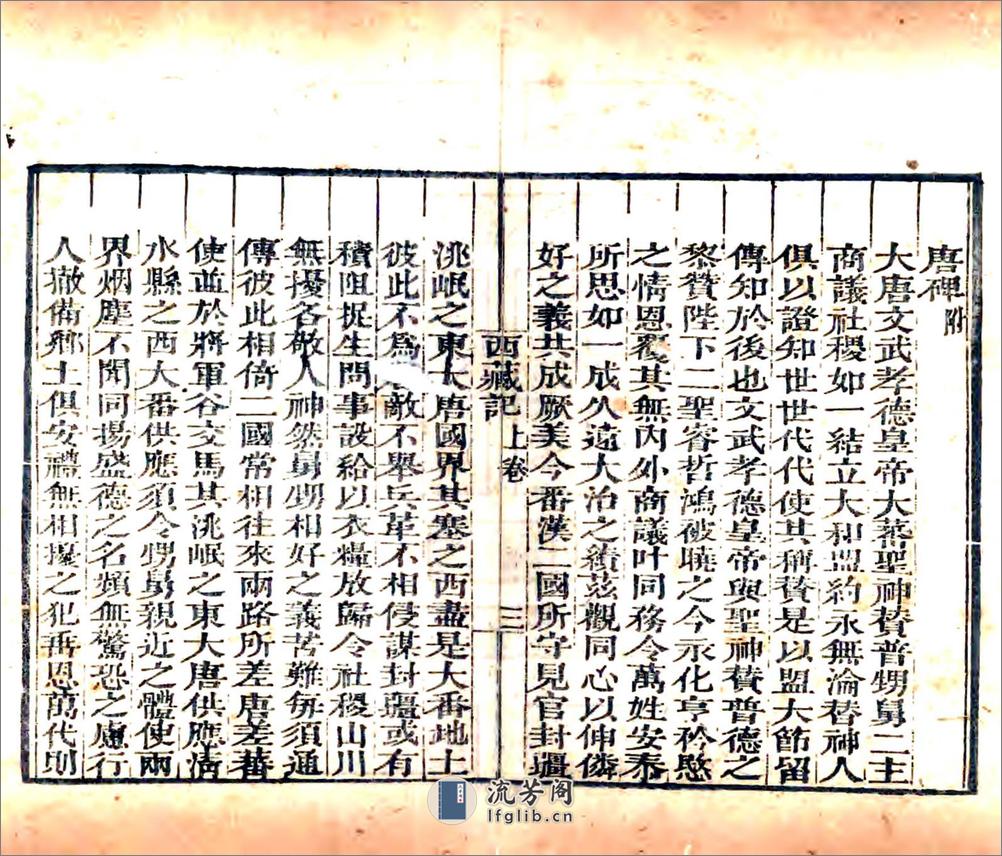 唐碑附
大唐文武孝德皇帝大蕃聖神贊普甥舅二主
商議社稷如一結立大和盟約永無淪替神人
俱以證知世世代代使其稱贊是以盟大節留
傳知於後也文武孝德皇帝與聖神贊普德之
黎贊陛下二聖睿哲鴻被曉之今永化亨矜愍
之情恩覆其無內外商議叶同務令萬姓安泰
所思如一成久遠大治之績茲觀同心以伸隣
好之義共成厥美今番漢二國所守見官封疆
西藏記 上卷 三
洮岷之東大唐國界其塞之西盡是大番地土
彼此不為 敵不舉兵革不相侵謀封疆或有
積阻捉生問事設給以衣糧放歸令社稷山川
無擾各敬人神然舅甥相好之義苦難每須通
傳彼此相倚二國常相往來兩路所差唐差蕃
使並於將軍谷交馬其洮岷之東大唐供應清
水縣之西大番供應須令甥舅親近之體使兩
界烟塵不聞同揚盛德之名頻無驚恐之慮行
人撤備鄉土俱安禮無相擾之犯垂恩萬代則
流芳阁
lfglib.cn